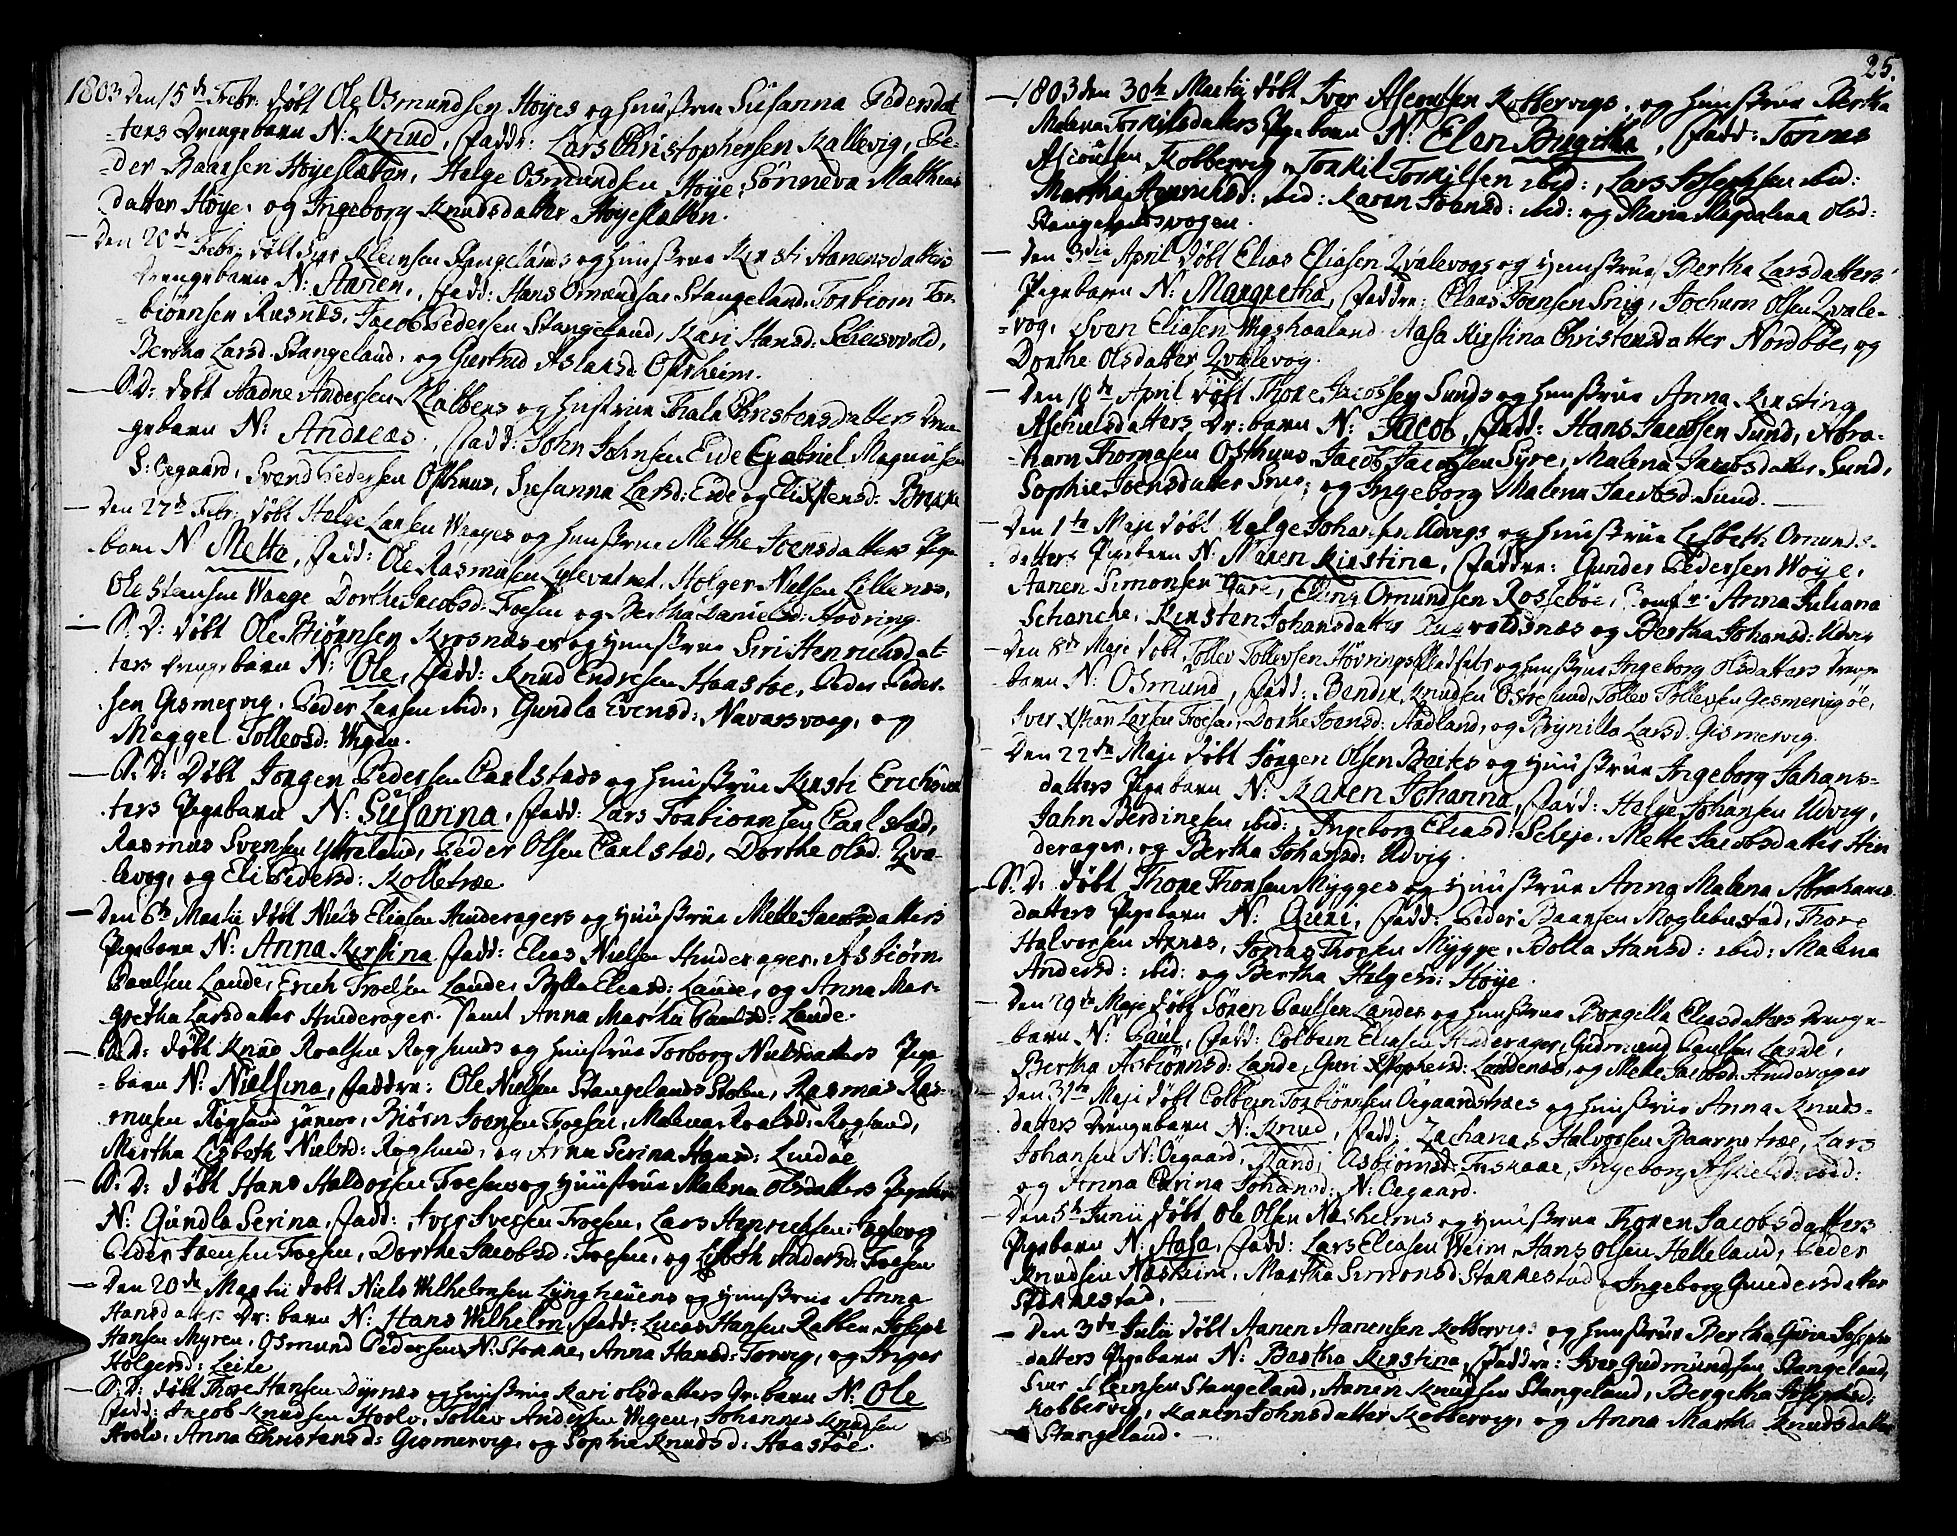 1803 Den 15de Febr: döbt Ole Osmundsen Höyes og Hustrue Susanna Pedersdat
-ters Drengebarn N: Knud, fadd: Lars Christophersen Kallevig, Pe-
-der Baarsen Höyeslætten, Helge Osmundsen Höye, Sönneva Mathias
datter Höye, og Ingeborg Knudsdatter Höyeslætten.
Den 20de Febr: döbt Siur Kleinsen Stangelands og Hustrue Kirsti Aanensdatters
Drengebarn N: Aanen, fadd: Hans Ormundsen Stangeland, Torbiörn Tor-
biörnsen Rusnes, Jacob Pedersen Stangeland, Kari Hansd:
Bertha Larsd. Stangeland, og Giertrud Aslaksd. Ostrheim.
S: D: döbt Aadne Andersen Kalbens og Hustrue Thala Christensdatters Dren
gebarn N: Andreas, fadd: John Johnsen Eide, Gabriel Magnusen
S: Oegaard, Svend Pedersen Osthuus, Susanna Larsd: Eide og Eli Xstensd: Brække
Den 27de Febr: döbt Helge Larsen Waages og Hustrue Methe Joensdatters Pige
barn N Metta, fadd: Ole Rasmusen, Holger Nielsen Lillenes,
Ole Steensen Waage, Dorthe Jacobsd: Foesen og Bertha Danielsd: Hovring.
S: D: döbt Ole Biörnsen Krosnes og Hustrue Siri Henrichsdat-
ters Drengebarn N: Ole, fadd: Knud Endresen Haastöe, Peder Peder-
sen Gismervig, Peder Larsen ibid:, Gundla Evensd: Navarsvaag, og
Meggel Tollevsd: Wigen.
S: D: döbt Jörgen Pedersen Carlstads og Hustrue Kirsti Erichsdat
ters Pigebarn N: Susanna, fadd: Lars Torbiörnsen Carlstad,
Rasmus Svensen Yttreland, Peder Olsen Carlstad, Dorthe Olsd. Qva-
levog, og Eli Pedersd: Kolletræe
Den 6te Martii döbt Niels Eliasen Hinderagers og Hustrue Mette Jacobsdatters
Pigebarn N: Anna Kirstina, fadd: Elias Nielsen Hinderager, Asbiörn
Paulsen Lande, Erich Troelsen Lande, Bylla Eliasd: Lande, og Anna Mar-
gretha Larsdatter Hinderager. samt Anna Martha Paulsd: Lande.
S: D: döbt Knud Roalsen Røgsunds og Hustrue Torborg Nielsdatters Pige
-barn N: Nielsina, faddre: Ole Nielsen Stangelands Stolen, Rasmus Ras-
musen Røgsund junior, Biörn Joensen Foesen, Malena Roalsd: Rogsund,
Martha Lisbeth Nielsd: Røgsund, og Anna Serina Hansd: Lindöe
S: D: döbt Hans Haldorsen Foesens og Hustrue Malena Olsdatters Pigebarn
N: Gundla Serina, fadd: Iver Iversen Foesen, Lars Henrichsen
Peder Joensen Foesen, Dorthe Jacobsd: Foesen, og Lisbeth Andersd: Foesen
Den 20de Martii döbt Niels Wilhelmsen Lynghauens og Hustrue Anna
Hansdatters Dr: barn N: Hans Wilhelm fadd: Lucas Hansen Kalben, Joseph
Hansen Myren, Osmund Pedersen N: Stokke, Anna Hansd: Torvig, og Inger
Holgersd: Leite
S: D: döbt Thore Hansen Dyrnes og Hustrue Kari Olsdatters Dr: barn N: Ole
fadd: Jacob Knudsen Hoolv, Tollev Andersen Wigen, Johannes Knudsen
Hoolv, Anna Christensd: Gismervig, og Sophie Knudsd: Haastöe.
25.
1803 den 30te Martii döbt Iver Asoutsen Kobbervigs, og Hustrue Bertha
Malena Torkilsdatters Pigebarn N: Elen Birgitha, fadd: Tönnes
Asoutsen Kobbervig, Torkil Torkilsen ibid:, Lars Josephsen ibid:
Martha Henrichsd: ibid: Karen Joensd: ibid: og Maria Magdalena Olsd:
Stangelandsvogen.
Den 3die April döbt Elias Eliasen Qvalevogs og Hustrue Bertha Larsdatters
Pigebarn N: Margretha, faddre: Claas Joensen Snig, Jochum Olsen Qvale-
vog, Sven Eliasen Wigshaaland, Aasa Kirstina Christensdatter Nordböe, og
Dorthe Olsdatter Qvalevog.
Den 10de April döbt Thore Jacobsen Sunds og Hustrue Anna Kirstina
Askielsdatters Dr: barn N: Jacob, fadd: Hans Jacobsen Sund, Abra-
ham Thomasen Osthuus, Jacob Jacobsen Syre, Malena Jacobsdatter Sund,
Sophie Joensdatter Snig, og Ingeborg Malena Jacobsd. Sund.
Den 1te Maji döbt Helge Johansen Udvigs og Hustrue Lisbeth Omunds-
datters Pigebarn N: Maren Kirstina, faddre: Gunder Pedersen Woye,
Aanen Simonsen Gare, Elling Omundsen Rossebøe, Jomfr: Anna Juliana
Schanche, Kirsten Johansdatter og Bertha Johansd: Udvig
Den 8de Maji döbt Tollev Tollevsen Hövrings Pladsets og Hustrue Ingeborg Olsdatters Drenge
barn N: Osmund, fadd: Bendix Knudsen Ostresund, Tollev Tollevsen Gismervigöe,
Iver Xstian Larsen Foesen, Dorthe Joensd: Aadland, og Brynilla Larsd. Gismervig.
Den 22de Maji döbt Jörgen Olsen Beites og Hustrue Ingeborg Johans-
datters Pigebarn N: Karen Johanna, fadd: Helge Johansen Udvig,
John Berdinesen ibid:, Ingeborg Eliasd: Seleje, Mette Jacobsdatter Hin
derager, og Bertha Johansd: Udvig.
S: D: döbt Thore Thorsen Mygges og Hustrue Anna Malena Abrahams
datters Pigebarn N: Guri, fadd: Peder Baarsen Moglebustad, Thore
Halvorsen Axnes, Jonas Thorsen Mygge, Bolla Hansd: ibid: Malena
Andersd: ibid: og Bertha Helgesd: Höye.
Den 29de Maji döbt Sören Paulsen Landes og Hustrue Borgilla Eliasdatters Drenge-
barn N: Paul, fadd: Colbein Eliasen Hinderager, Gudmund Paulsen Lande,
Bertha Asbiörnsd: Lande, Guri Xstophersd: Landenes, og Mette Jacobsd: Hinderager
Den 31te Maji döbt Colbein Torbiörnsen Oegaardstræes og Hustrue Anna Knuds-
datters Drengebarn N: Knud, fadd: Zacharias Halvorsen Baarnetræe, Lars
Johansen N: Oegaard, Randi Asbiörnsd: Fiskaae, Ingeborg Askielsd: ibid:
og Anna Carina Johansd: N: Oegaard.
Den 5te Junii döbt Ole Olsen Næsheims og Hustrue Thoren Jacobsdatters
Pigebarn N: Aasa, fadd: Lars Eliasen Weim, Hans Olsen Helleland, Peder
Knudsen Næsheim, Martha Simonsd. Stakkestad og Ingeborg Gundersdatter
Stakkestad.
Den 3die Julii döbt Aanen Aanensen Kobbervigs og Hustrue Bertha Guria Josephs
datters Pigebarn N: Bertha Kirstina, faddre: Iver Gudmundsen Stangeland,
Siur Kleensen Stangeland, Aanen Knudsen Stangeland, Bergetha Josephsd:
Kobbervig, Karen Johnsdatter Kobbervig, og Anna Martha Knudsdatter
Stangeland.